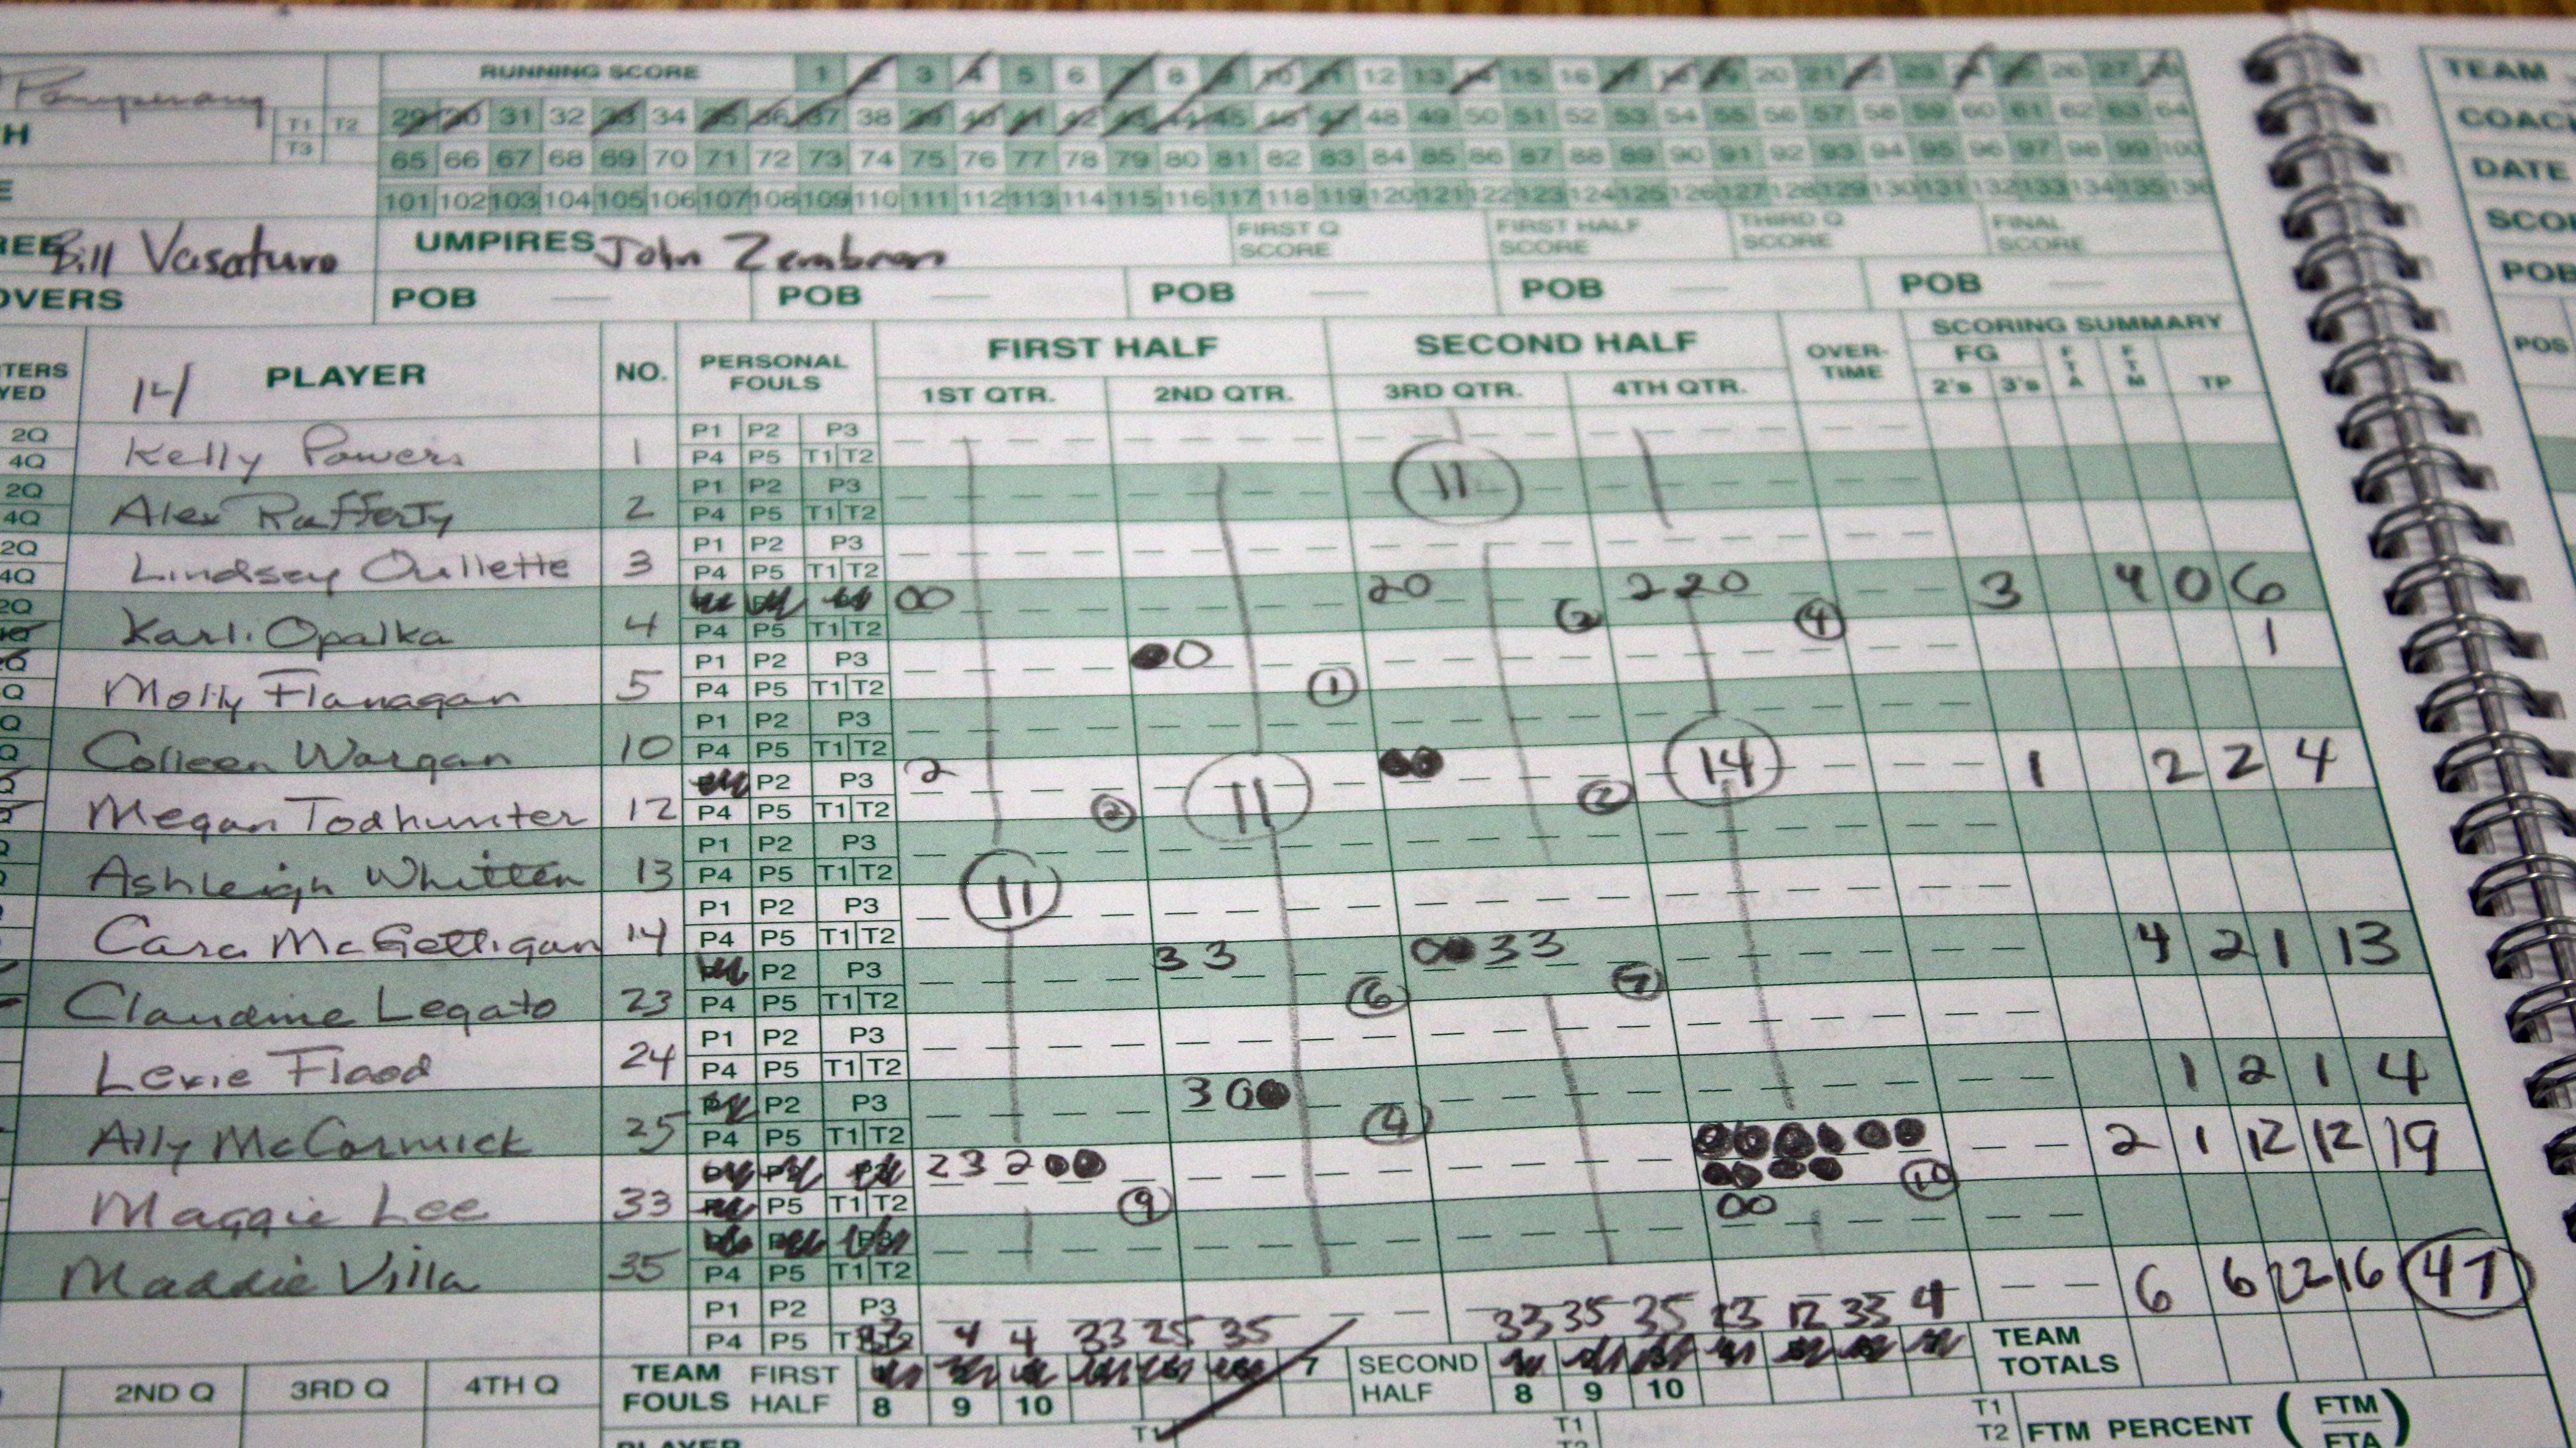 Pomperaug
RUNNING SCORE 1 2 3 4 5 6 7 8 9 10 11 12 13 14 15 16 17 18 19 20 21 22 23 24 25 26 27 28
TEAM
H T1 T2 29 30 31 32 33 34 35 36 37 38 39 40 41 42 43 44 45 46 47 48 49 50 51 52 53 54 55 56 57 58 59 60 61 62 63 64
T3
COAC
65 66 67 68 69 70 71 72 73 74 75 76 77 78 79 80 81 82 83 84 85 86 87 88 89 90 91 92 93 94 95 96 97 98 99 100
DATE
E 101 102 103 104 105 106 107 108 109 110 111 112 113 114 115 116 117 118 119 120 121 122 123 124 125 126 127 128 129 130 131 132 133 134 135 136
SCO
REE Bill Vasaturo UMPIRES John FIRST Q SCORE FIRST HALF SCORE THIRD Q SCORE FINAL SCORE
POB
OVERS POB POB POB POB POB
POS
TERS YED 14 PLAYER NO. PERSONAL FOULS FIRST HALF SECOND HALF OVER-TIME SCORING SUMMARY
1ST QTR. 2ND QTR. 3RD QTR. 4TH QTR. FG 2's 3's FTA FTM TP
2Q P1 P2 P3
4Q Kelly Powers 1 P4 P5 T1 T2
2Q P1 P2 P3 11
4Q Alex Rafferty 2 P4 P5 T1 T2
2Q P1 P2 P3
4Q Lindsey Oullette 3 P4 P5 T1 T2
2Q 00 20 220 3 4 0 6
Karli Opalka 4 P4 P5 T1 T2 2 4
P1 P2 P3 0 1
Q Molly Flanagan 5 P4 P5 T1 T2 1
Q P1 P2 P3
Q Colleen Wargan 10 P4 P5 T1 T2 14
P2 P3 2 1 2 2 4
Megan Todhunter 12 P4 P5 T1 T2 2 11 2
P1 P2 P3
Ashleigh Whitten 13 P4 P5 T1 T2 11
P1 P2 P3
Cara McGettigan 14 P4 P5 T1 T2
P2 P3 3 3 0 3 3 4 2 1 13
Claudine Legato 23 P4 P5 T1 T2 6 7
P1 P2 P3
Lexie Flood 24 P4 P5 T1 T2
P2 P3 3 0 1 2 1 4
Ally McCormick 25 P4 P5 T1 T2 4
2 3 2 2 1 12 12 19
Maggie Lee 33 P5 T1 T2 9 10
00
Maddie Villa 35 P4 P5 T1 T2
P1 P2 P3 6 6 22 16 47
P4 P5 4 4 33 25 35 33 35 35 23 12 33 4
2ND Q 3RD Q 4TH Q TEAM FOULS FIRST HALF 7 SECOND HALF TEAM TOTALS
8 9 10 8 9 10
T1 T1 T1
T2 FTM PERCENT ( FTM
FTA )
PLAYER